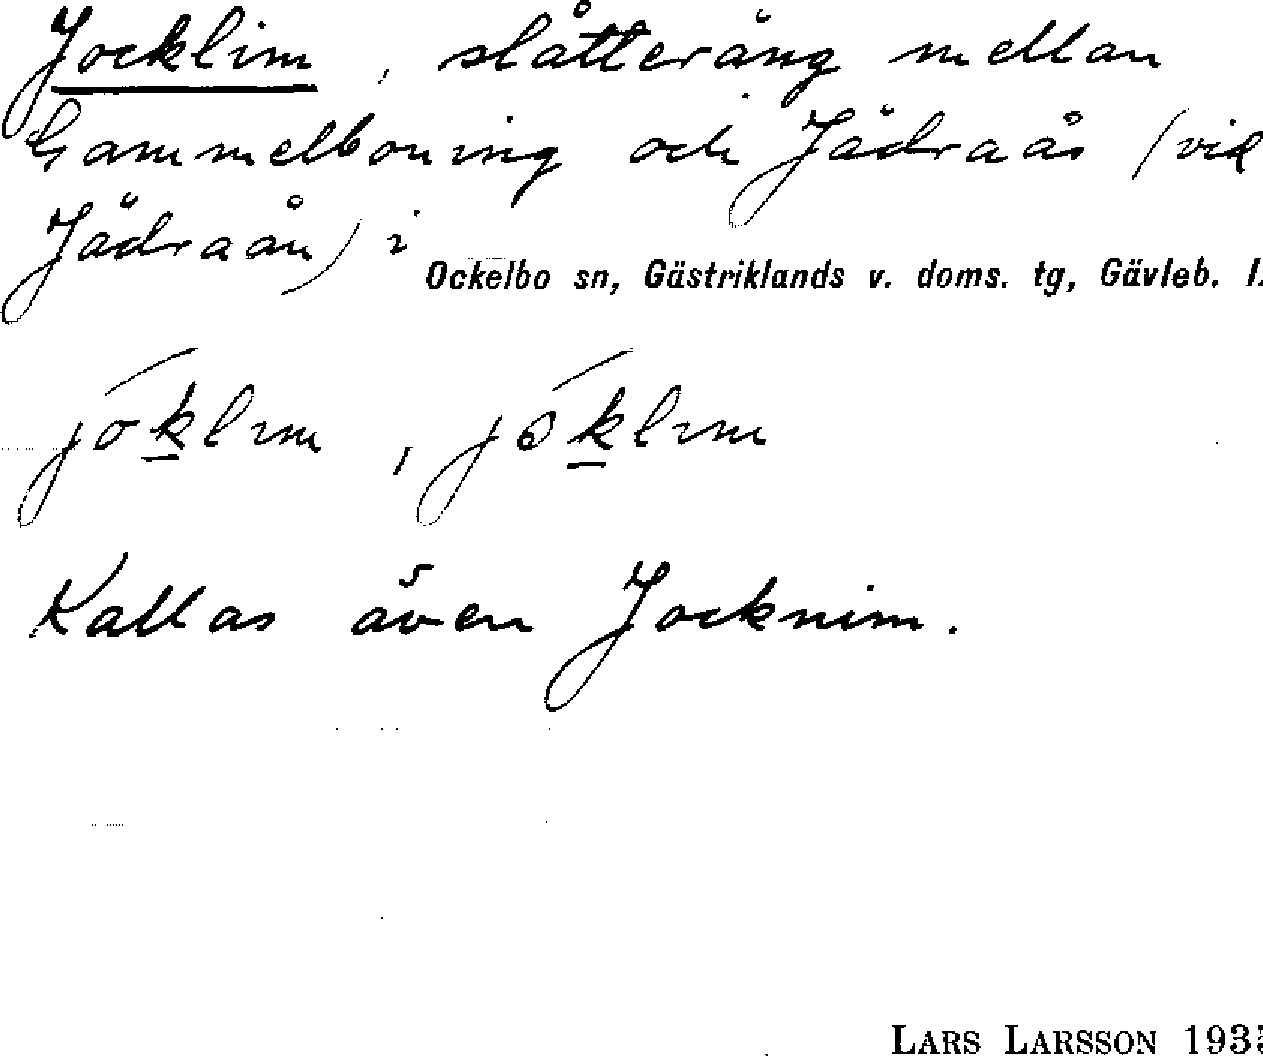 Jocklim, slåtteräng mellan
Gammelboning och Jädraås (vid
Jädraån) i
Ockelbo sn, Gästriklands v. doms. tg, Gävleb. l.
jóklım, jóklım
Kallas även Jocknim.
LARS LARSSON 1935